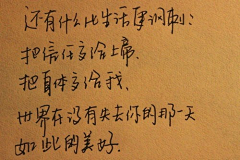 还有什么比生活更讽刺：
把信任交给上帝、
把身体交给我、
世界在没有失去你的那一天
如此的美好.